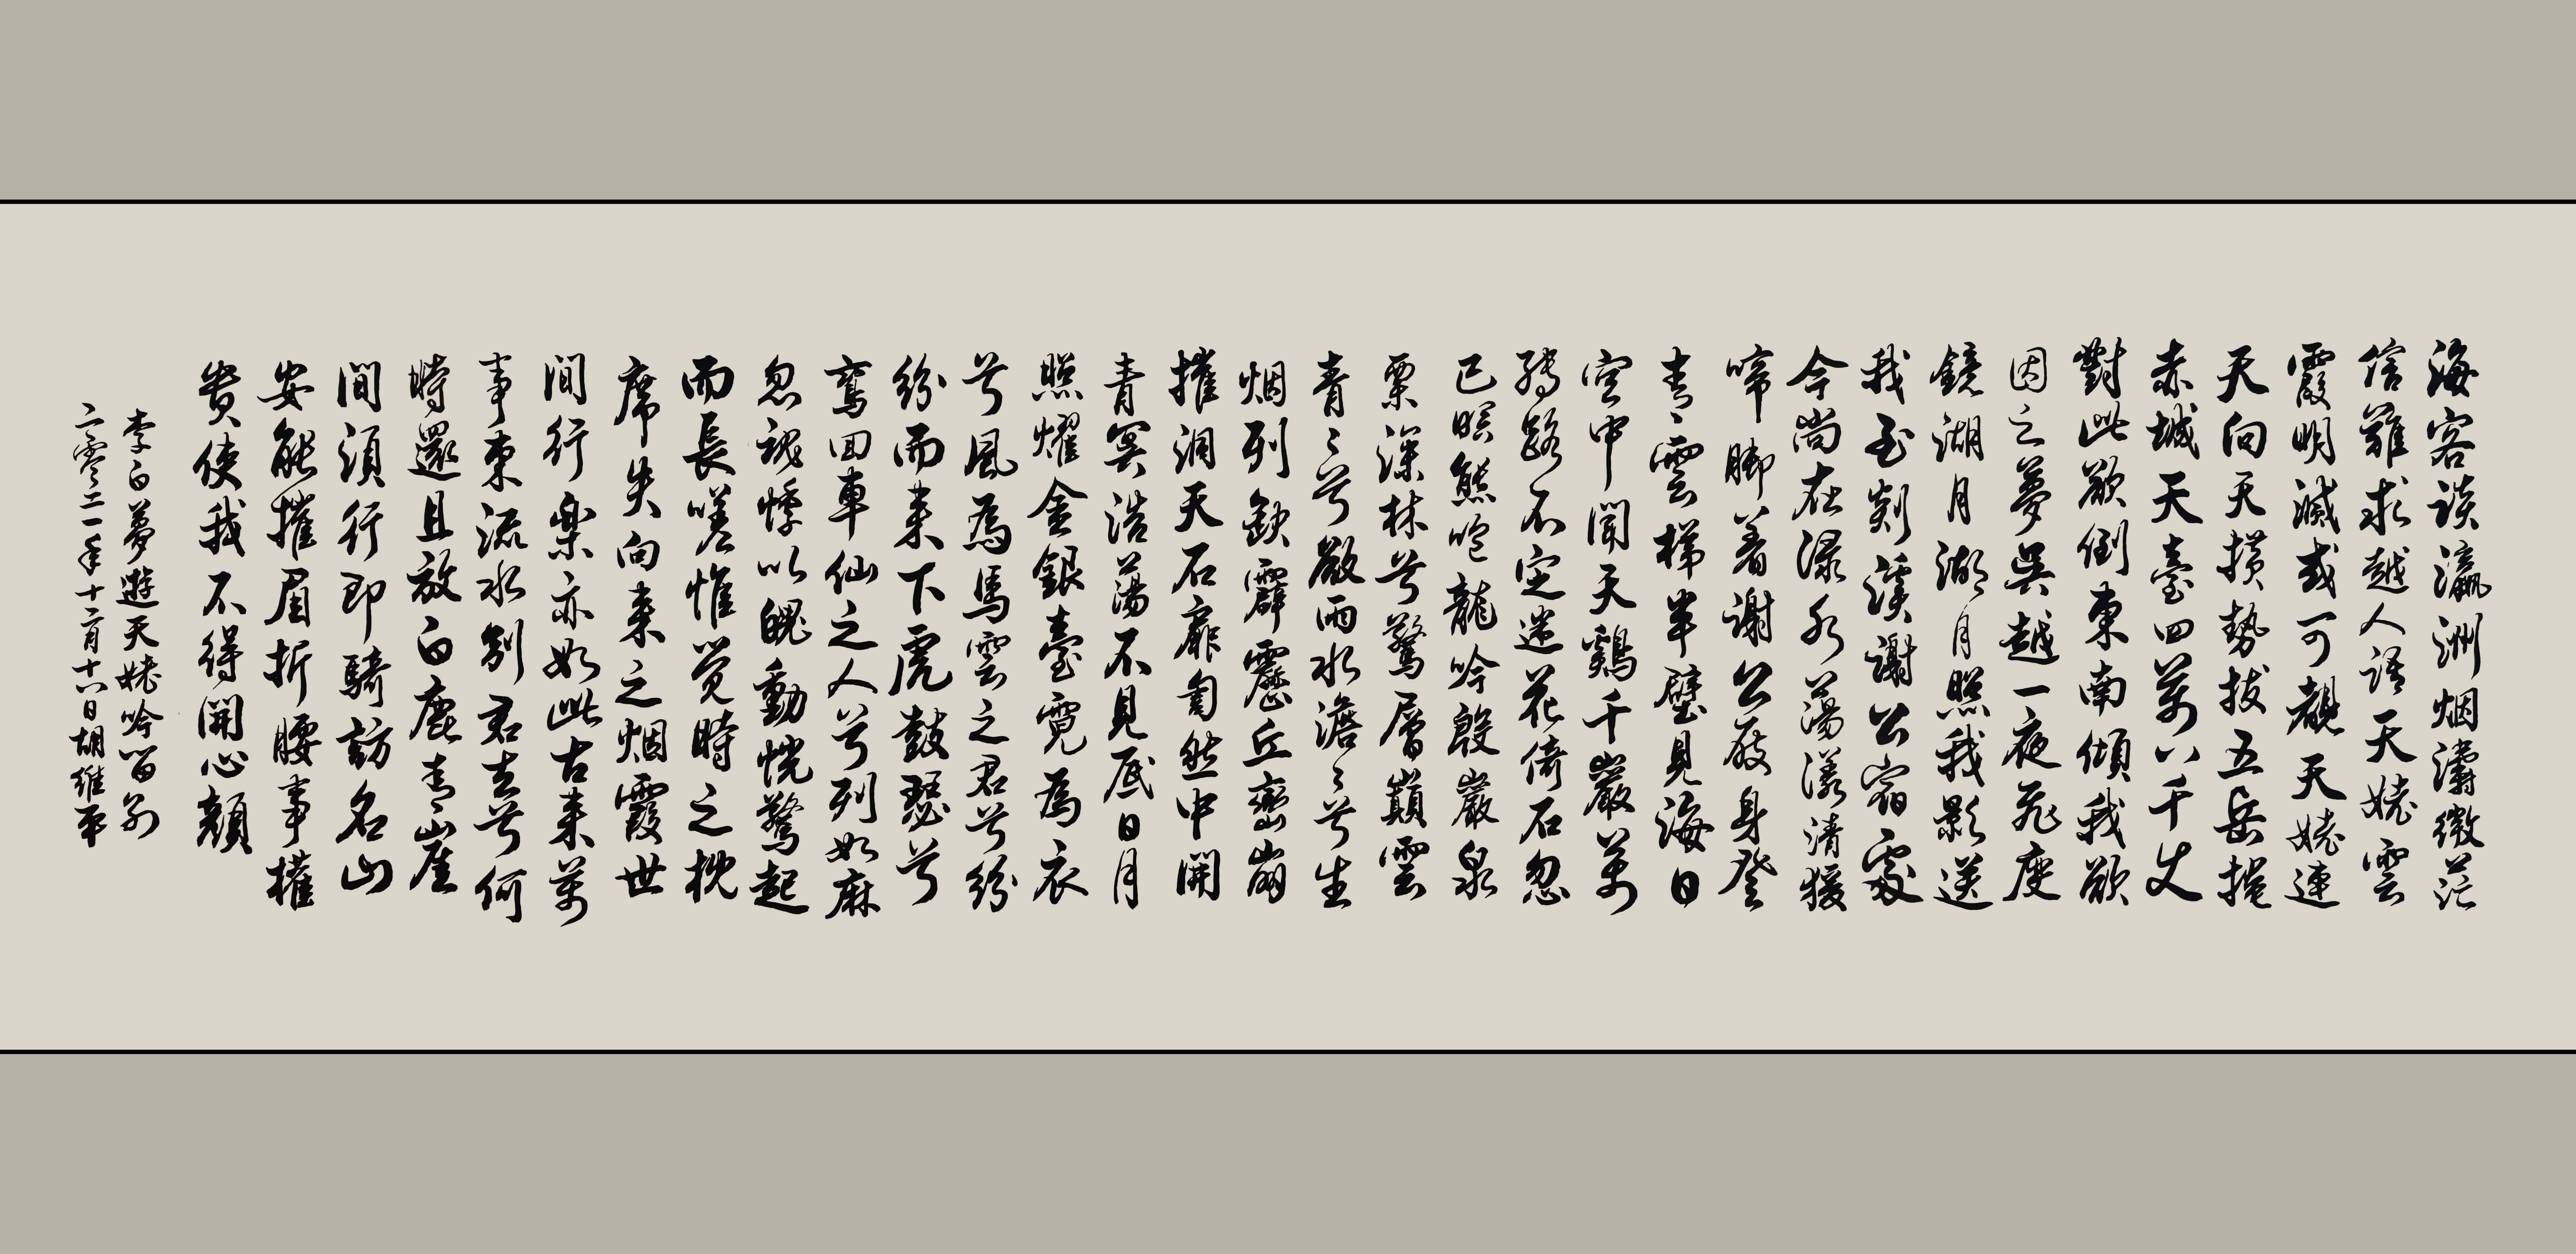 海客談瀛洲烟濤微茫
信難求越人語天姥雲
霞明滅或可覩天姥連
天向天橫勢拔五岳掩
赤城天臺四萬八千丈
對此欲倒東南傾我欲
因之夢吳越一夜飛度
鏡湖月湖月照我影送
我至剡溪謝公宿處
今尚在淥水蕩漾清猨
啼脚着謝公屐身登
青雲梯半壁見海日
空中聞天鷄千巖萬
轉路不定迷花倚石忽
已暝熊咆龍吟殷巖泉
栗深林兮驚層巔雲
青〻兮欲雨水澹〻兮生
烟列缺霹靂丘巒崩
摧洞天石扉訇然中開
青冥浩蕩不見底日月
照燿金銀臺霓為衣
兮風為馬雲之君兮紛
紛而来下虎鼓瑟兮
鸞回車仙之人兮列如麻
忽魂悸以魄動恍驚起
而長嗟惟覺時之枕
席失向来之烟霞世
間行樂亦如此古来萬
事東流水別君去兮何
時還且放白鹿青崖
間須行即騎訪名山
安能摧眉折腰事權
貴使我不得開心顏
李白夢遊天姥吟留別
二零二一年十二月十八日胡維平